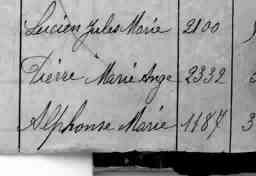 Lucien Jules Marie 2100
Pierre Marie Ange 2332
Alphonse Marie 1187 3